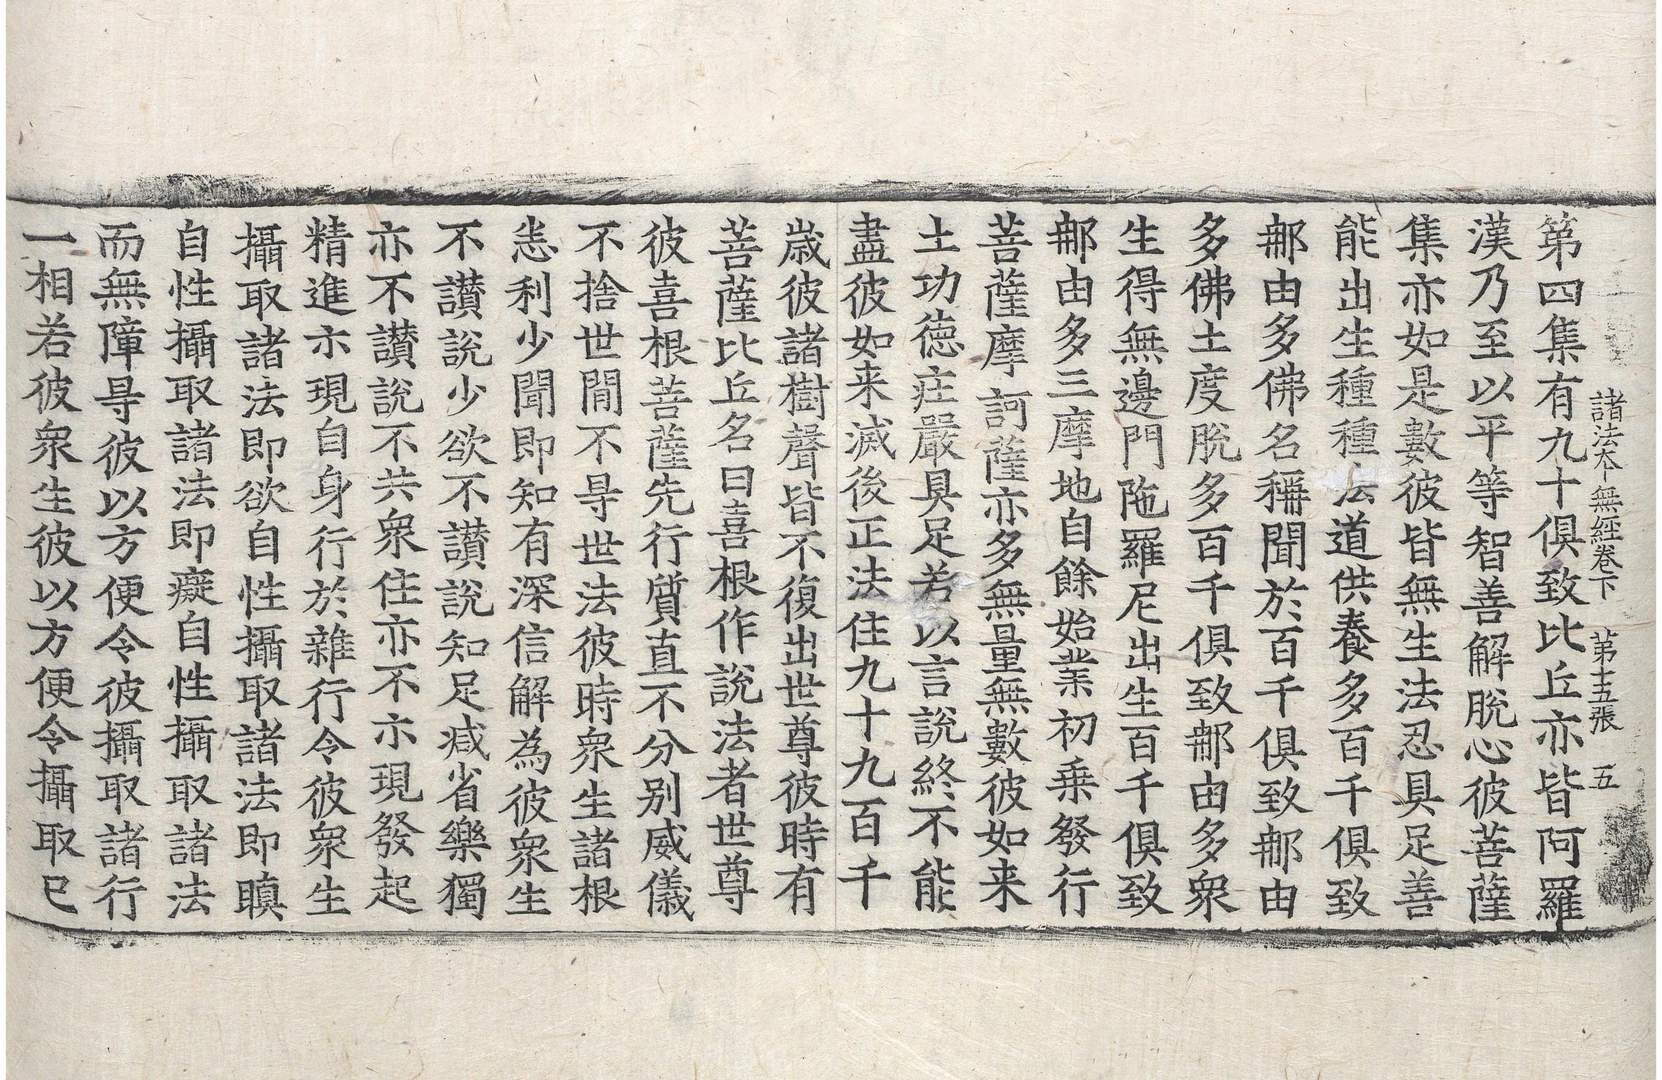 諸法本無經卷下　第十五張　五
第四集有九十俱致比丘亦皆阿羅
漢乃至以平等智善解脫心彼菩薩
集亦如是數彼皆無生法忍具足善
能出生種種法道供養多百千俱致
那由多佛名稱聞於百千俱致那由
多佛土度脫多百千俱致那由多眾
生得無邊門陁羅尼出生百千俱致
那由多三摩地自餘始業初乗發行
菩薩摩訶薩亦多無量無數彼如来
土功德庄嚴具足若以言說終不能
盡彼如来滅後正法住九十九百千
歲彼諸樹聲皆不復出世尊彼時有
菩薩比丘名曰喜根作說法者世尊
彼喜根菩薩先行質直不分別威儀
不捨世間不㝵世法彼時眾生諸根
悉利少聞即知有深信解為彼眾生
不讃說少欲不讃說知足减省樂獨
亦不讃說不共眾住亦不示現發起
精進示現自身行於雜行令彼眾生
攝取諸法即欲自性攝取諸法即瞋
自性攝取諸法即癡自性攝取諸法
而無障㝵彼以方便令彼攝取諸行
一相若彼眾生彼以方便令攝取已